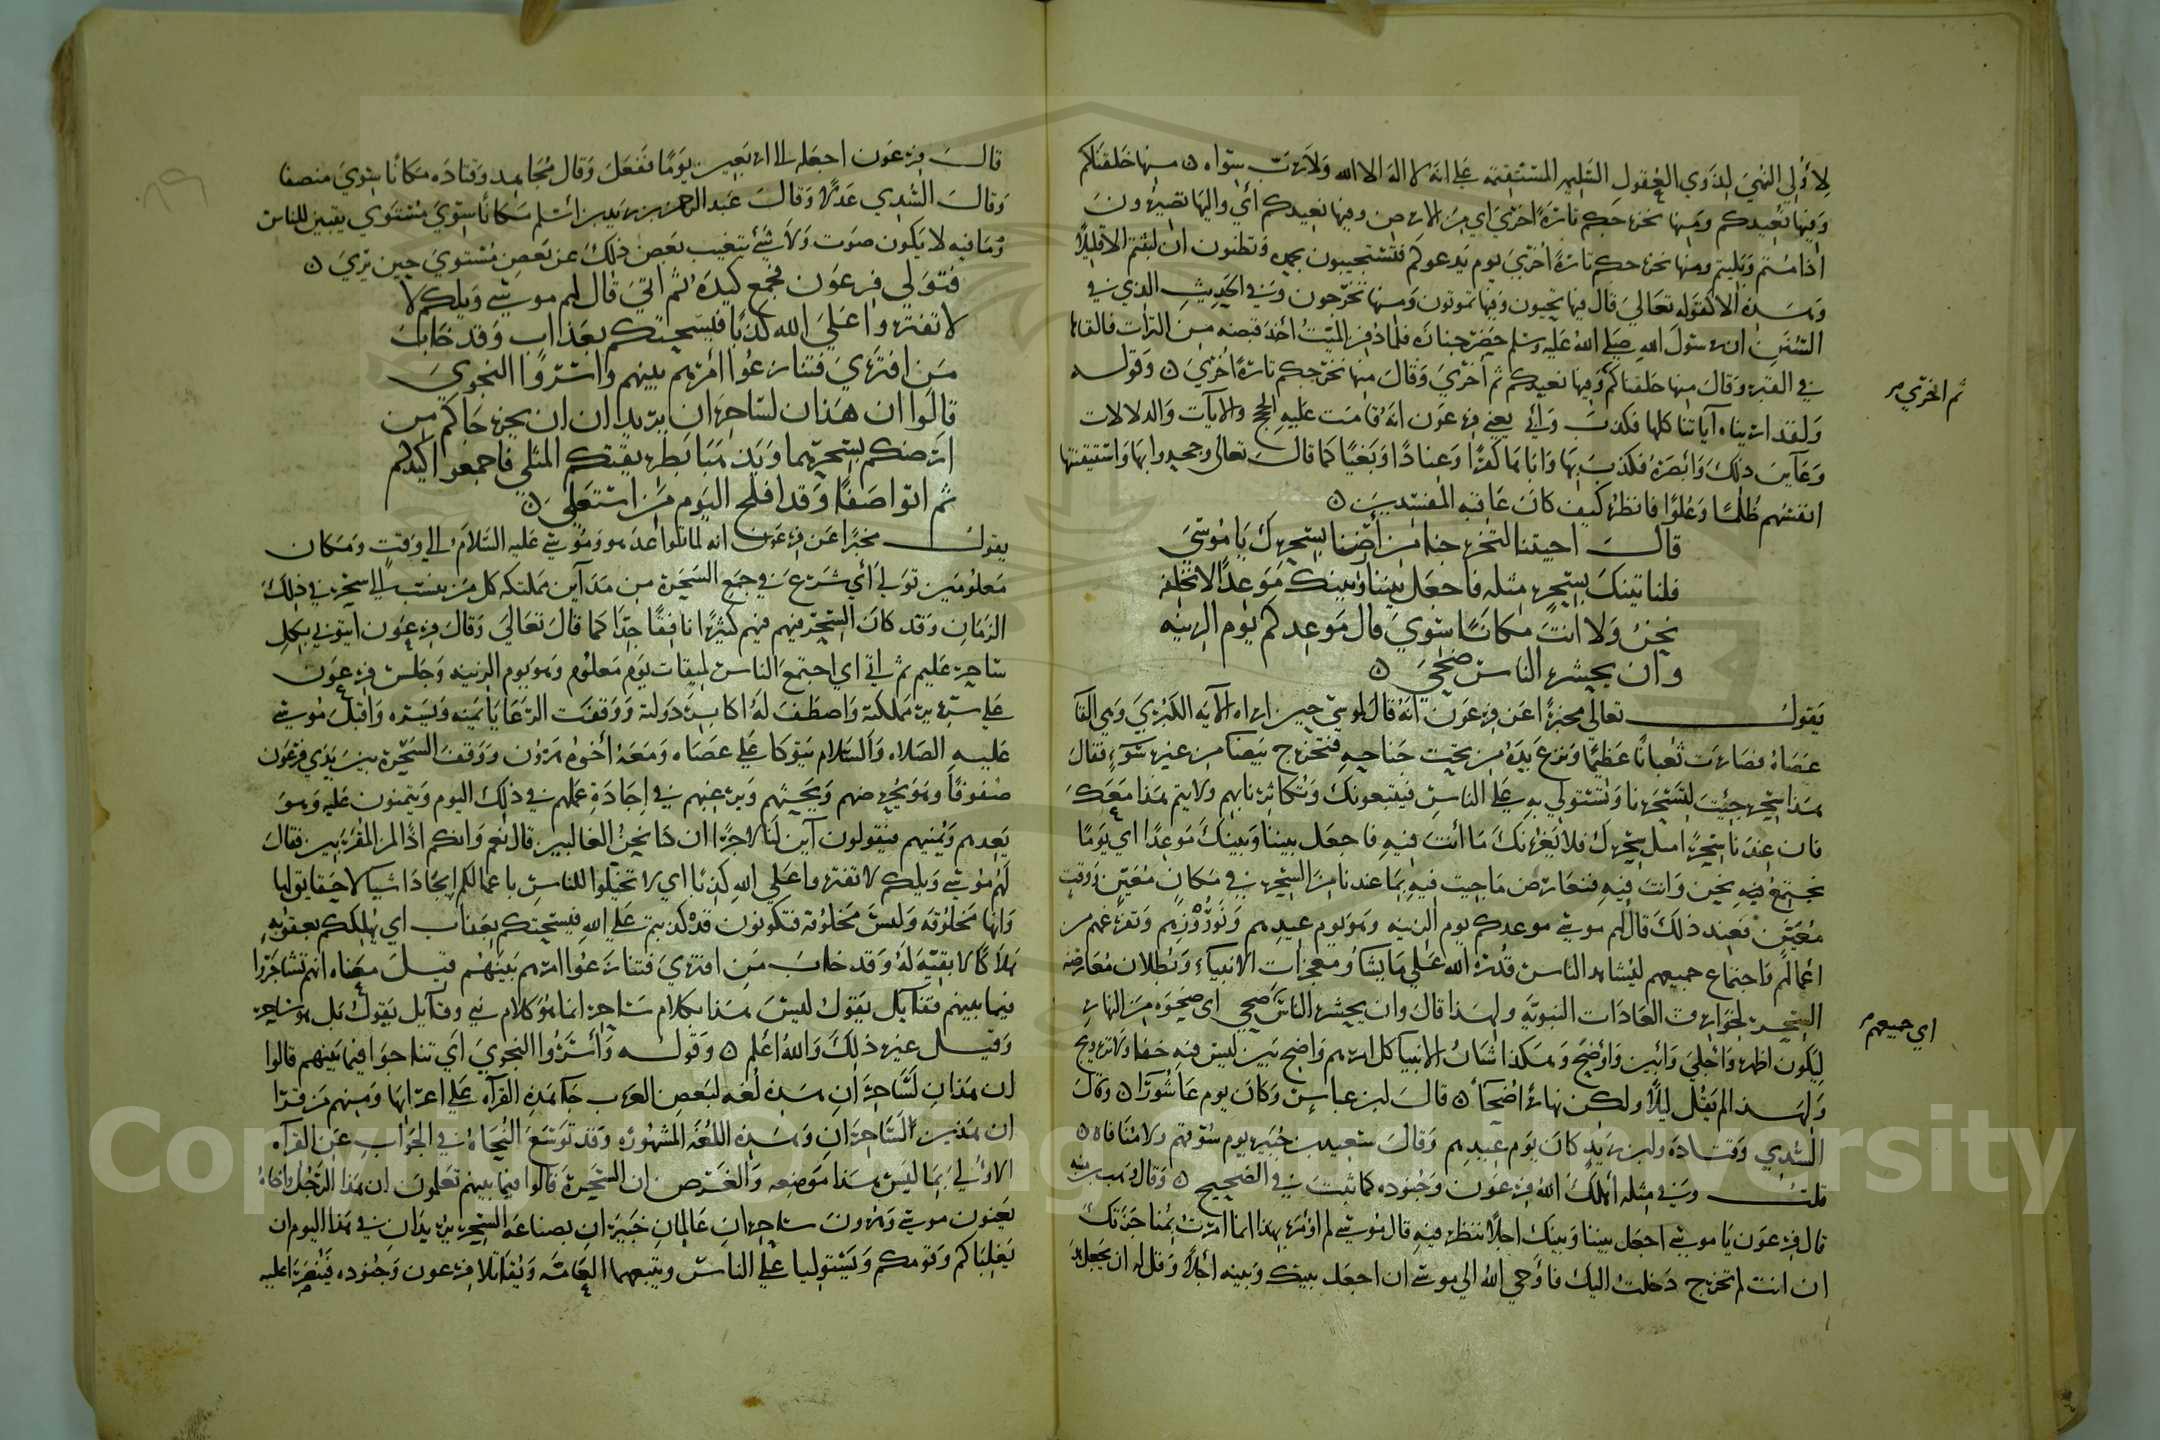 لأولي النهي لذوي العقول السليمه المستقيمه علي انه لا اله الا الله ولا رب سواه ٥ منها خلقناكم
وفيها نعيدكم ومنها نخرجكم تارة اخري اي من الارض وفيها نعيدكم أي واليها تصيرون
اذا متم وبليتم ومنها نخرجكم تارة اخري يوم يدعوكم فتستجيبون بحمده وتظنون ان لبثتم الا قليلا
وهذه الا كقوله تعالي قال فيها تحيون وفيها تموتون ومنها تخرجون وفي الحديث الذي في
السنن ان رسول الله صلي الله عليه وسلم حضر جنازه فلما دفن الميت اخذ قبضه من التراب فالقاها
في القبر وقال منها خلقناكم وفيها نعيدكم ثم أخري وقال منها نخرجكم تارة اخري ٥ وقوله
ثم اخري
ولقد اريناه آياتنا كلها فكذب وأبي يعني فرعون انه قامت عليه الحجج والآيات والدلالات
وعاين ذلك وأبصره فكذب بها وأباها كفرا وعنادا وبغيا كما قال تعالي وجحدوا بها واستيقنتها
انفسهم ظلما وعلوا فانظر كيف كان عاقبه المفسدين ٥
قال اجيتنا لتخرجنا من أرضنا بسحرك يا موسي
فلناتينك بسحر مثله فاجعل بيننا وبينك موعدا لا نخلفه
نحن ولا انت مكانا سوي قال موعدكم يوم الزينه
وان يحشر الناس ضحي ٥
يقول تعالي مخبرا عن فرعون انه قال لموسي حين اراه الآيه الكبري وهي القا
عصاه فصارت ثعبانا عظيما ونزع يده من تحت جناحه فتخرج بيضا من غير سوء فقال
هذا سحر جئت لتسحرنا وتستولي به علي الناس فيتبعونك وتكاثرنا بهم ولا يتم هذا معك
فان عندنا سحرا مثل سحرك فلا يغرنك ما أنت فيه فاجعل بيننا وبينك موعدا اي يوما
نجتمع فيه نحن وانت فيه فنعارض ما جيت فيه بما عندنا من السحر في مكان معين ووقت
معين فعند ذلك قال لهم موسي موعدكم يوم الزينه وهو يوم عيدهم ونوروزهم وتفرغهم من
اعمالهم واجتماع جميعهم ليشاهد الناس قدرة الله علي ما يشا ومعجزات الانبياء وبطلان معارضه
السحر لخوارق العادات النبويه ولهذا قال وان يحشر الناس ضحي اي ضحوه من النهار
اي جميعهم
ليكون اظهر وأجلي وأبين وأوضح وهكذا شان الانبيا كل امرهم واضح بين ليس فيه خفا ولا ترويج
ولهذا لم يقل ليلا ولكن نهارا ضحأ ٥ قال ابن عباس وكان يوم عاشورا ٥ وقال
السدي وقتاده وابن زيد كان يوم عيدهم وقال سعيد بن جبير يوم سوقهم ولا منافاه ٥
قلت وفي مثله أهلك الله فرعون وجنوده كما ثبت في الصحيح ٥ وقال وهب بن منبه
قال فرعون يا موسي اجعل بيننا وبينك اجلا ننتظر فيه قال موسي لم أومر بهذا انما امرت بمناجزتك
ان انت لم تخرج دخلت اليك فأوحي الله الي موسي ان اجعل بينك وبينه اجلا وقل له ان يجعل هو
٨٩
قال فرعون اجعله الي اربعين يوما ففعل وقال مجاهد وقتاده مكانا سوي منصفا
وقال السدي عدلا وقال عبد الرحمن بن زيد بن اسلم مكانا سوي مستوي يتبين للناس
وما فيه لا يكون صوت ولا شئ يتغيب بعض ذلك عن بعض مستوي حين يري ٥
فتولي فرعون فجمع كيده ثم اتي قال لهم موسي ويلكم لا
لا تفتروا علي الله كذبا فيسحتكم بعذاب وقد خاب
من افتري فتنازعوا امرهم بينهم واسروا النجوي
قالوا ان هذان لساحران يريدان ان يخرجاكم من
ارضكم بسحرهما ويذهبا بطريقتكم المثلي فاجمعوا كيدكم
ثم اتوا صفا وقد افلح اليوم من استعلي ٥
يقول مخبرا عن فرعون انه لما تواعد هو وموسي عليه السلام الي وقت ومكان
معلومين تولي أي شرع في جمع السحرة من مداين مملكته كل من ينسب الي سحر في ذلك
الزمان وقد كان السحر فيهم كثيرا نافقا جدا كما قال تعالي وقال فرعون ايتوني بكل
ساحر عليم ثم اتي اي اجتمع الناس لميقات يوم معلوم وهو يوم الزينه وجلس فرعون
علي سرير مملكته واصطف له اكابر دولته ووقفت الرعايا يمنه ويسره واقبل موسي
عليه الصلاه والسلام يتوكا علي عصاه ومعه أخوه هرون ووقف السحرة بين يدي فرعون
صفوفا وهو يحرضهم ويحثهم ويرغبهم في اجادة عملهم في ذلك اليوم ويتمنون عليه وهو
يعدهم ويمنيهم فيقولون أين لنا لاجرا ان كنا نحن الغالبين قال نعم وانكم اذا لمن المقربين فقال
لهم موسي ويلكم لا تفتروا علي الله كذبا اي لا تخيلوا للناس باعمالكم ايجاد اشيا لا حقايق لها
وانها مخلوقه وليس مخلوقه فتكونون قد كذبتم علي الله فيسحتكم بعذاب اي يهلككم بعقوبه
هلاكا لا بقيه له وقد خاب من افتري فتنازعوا امرهم بينهم قيل معناه انهم تشاجروا
فيما بينهم فقايل يقول ليس هذا بكلام ساحر انما هو كلام نبي وقايل يقول بل هو ساحر
وقيل غير ذلك والله اعلم ٥ وقوله وأسروا النجوي أي تناجوا فيما بينهم قالوا
ان هذان لساحران هذه لغه لبعض العرب جا بهذه القرآه علي اعرابها ومنهم من قرا
ان هذين لساحران وهذه اللغه المشهوره وقد توسع النحاه في الجواب عن القرآه
الاولي بما ليس هذا موضعه والغرض ان السحرة قالوا فيما بينهم تعلمون ان هذا الرجل واخاه
يعنون موسي وهرون ساحران عالمان خبيران بصناعه السحر يريدان في هذا اليوم ان
يغلباكم وقومكم ويستوليا علي الناس ويتبعهما العامه ويقاتلا فرعون وجنوده فينصرا عليه
Copyright © King Saud University